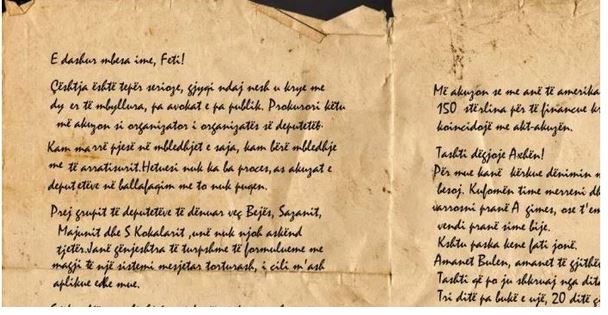 E dashur mbesa ime, Feti!
Çështja është tepër serioze, gjyqi ndaj nesh u krye me
dy er të mbyllura, pa avokat e pa publik. Prokurori këtu
më akuzon si organizator i organizatës së deputetëb.
Kam marrë pjesë në mbledhjet e saja, kam bërë mbledhje
me të arratisurit. Hetuesi nuk ka ba proces, as akuzat e
deputetëve në ballafaqim me to nuk puqen.
Prej grupit të deputetëve të dënuar veç Bejës, Sazanit,
Majunit dhe S Kokalarit , unë nuk njoh askënd
tjetër. Janë gënjeshtra të turpshme të formulueme me
magji të një sistemi mesjetar torturash, i cili m'ash
aplikue edhe mue.
Më akuzon se me anë të amerika
150 stërlina për të financue
koincidojë me akt-akuzën.
Tashti dëgjoje Axhën!
Për mue kanë kërkue dënimin
besoj. Kufomën time merreni
varrosni pranë A gimes, ose
vendi pranë sime bije.
Kshtu paska kenë fati jonë.
Amanet Bulen, amanet të gjithë
Tashti që po ju shkruaj nga dita
Tri ditë pa bukë e ujë, 20 ditë